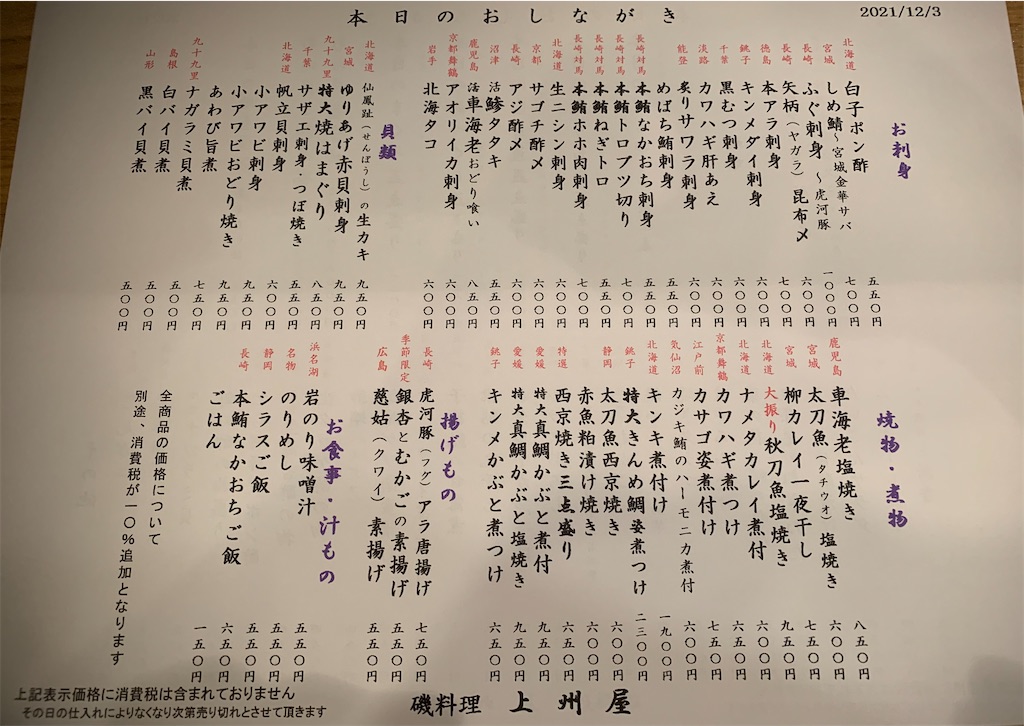 2021/12/3
本日のおしながき
お刺身
北海道 白子ポン酢 五五〇円
宮城 しめ鯖～宮城金華サバ 七〇〇円
長崎 ふぐ刺身～虎河豚 一〇〇〇円
長崎 矢柄（ヤガラ）昆布〆 六〇〇円
徳島 本アラ刺身 七〇〇円
銚子 キンメダイ刺身 六〇〇円
千葉 黒むつ刺身 六〇〇円
淡路 カワハギ肝あえ 六〇〇円
能登 炙りサワラ刺身 六〇〇円
めばち鮪刺身 五五〇円
長崎対馬 本鮪なかおち刺身 五五〇円
長崎対馬 本鮪トロブツ切り 六〇〇円
長崎対馬 本鮪ねぎトロ 五五〇円
長崎対馬 本鮪ホホ肉刺身 七〇〇円
北海道 生ニシン刺身 六〇〇円
京都 サゴチ酢〆 六〇〇円
長崎 アジ酢〆 六〇〇円
沼津 活鯵タタキ 五五〇円
鹿児島 活車海老おどり喰い 八五〇円
京都舞鶴 アオリイカ刺身 六〇〇円
岩手 北海タコ 六〇〇円
貝類
北海道 仙鳳趾（せんぽうし）の生カキ 九五〇円
宮城 ゆりあげ赤貝刺身 九五〇円
九十九里 特大焼はまぐり 八五〇円
千葉 サザエ刺身・つぼ焼き 五五〇円
北海道 帆立貝刺身 六〇〇円
小アワビ刺身 九五〇円
小アワビおどり焼き 九五〇円
あわび旨煮 七五〇円
九十九里 ナガラミ貝煮 五〇〇円
島根 白バイ貝煮 五〇〇円
山形 黒バイ貝煮 五〇〇円
焼物・煮物
鹿児島 車海老塩焼き 八五〇円
宮城 太刀魚（タチウオ）塩焼き 六〇〇円
宮城 柳カレイ一夜干し 七五〇円
北海道 大振り秋刀魚塩焼き 九五〇円
北海道 ナメタカレイ煮付 六〇〇円
京都舞鶴 カワハギ煮つけ 六五〇円
江戸前 カサゴ姿煮付け 七五〇円
気仙沼 カジキ鮪のハーモニカ煮付 六〇〇円
北海道 キンキ煮付け 一九〇〇円
銚子 特大きんめ鯛姿煮つけ 二三〇〇円
静岡 太刀魚西京焼き 六〇〇円
赤魚粕漬け焼き 六〇〇円
特選 西京焼き三点盛り 六五〇円
愛媛 特大真鯛かぶと煮付 九五〇円
愛媛 特大真鯛かぶと塩焼き 九五〇円
銚子 キンメかぶと煮つけ 六五〇円
揚げもの
長崎 虎河豚（フグ）アラ唐揚げ 七五〇円
季節限定 銀杏とむかごの素揚げ 五五〇円
広島 慈姑（クワイ）素揚げ 五五〇円
お食事・汁もの
浜名湖 岩のり味噌汁 五五〇円
名物 のりめし 五五〇円
静岡 シラスご飯 五五〇円
長崎 本鮪なかおちご飯 六五〇円
ごはん 一五〇円
全商品の価格について
別途、消費税が一〇％追加となります
上記表示価格に消費税は含まれておりません
その日の仕入れによりなくなり次第売り切れとさせて頂きます
磯料理 上州屋